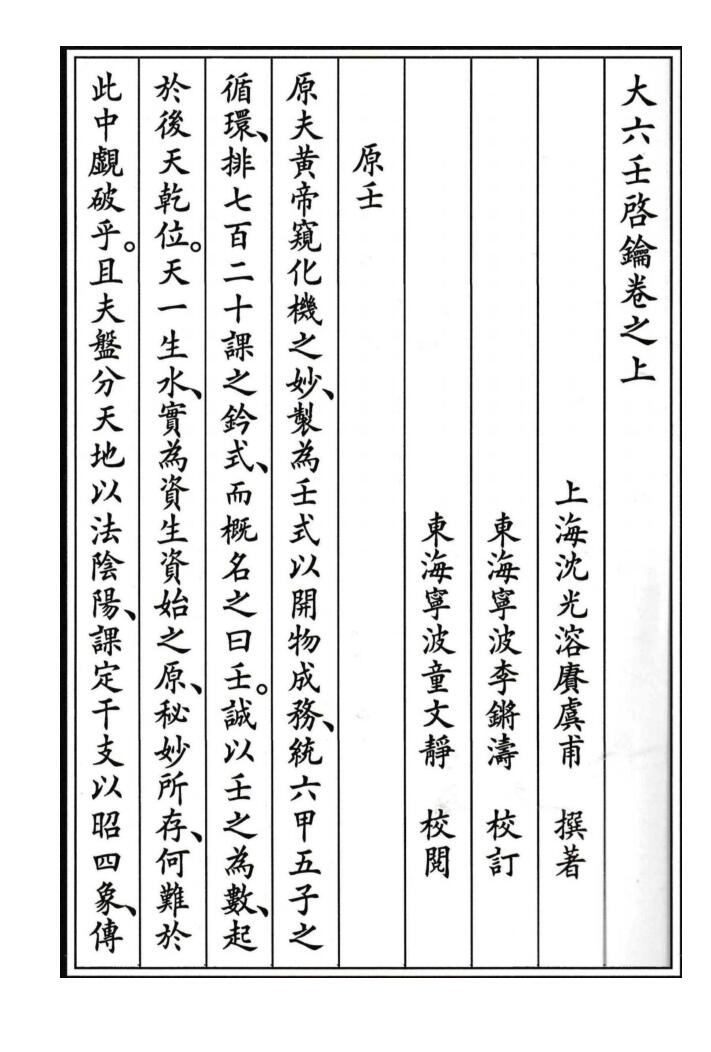 大六壬啓鑰卷之上
上海沈光溶賡虞甫　撰著
東海寧波李鏘濤　校訂
東海寧波童文靜　校閱
原壬
原夫黄帝窺化機之妙、製為壬式以開物成務、統六甲五子之
循環、排七百二十課之鈐式、而概名之曰壬。誠以壬之為數、起
於後天乾位。天一生水、實為資生資始之原、秘妙所存、何難於
此中覷破乎。且夫盤分天地以法陰陽、課定干支以昭四象、傳